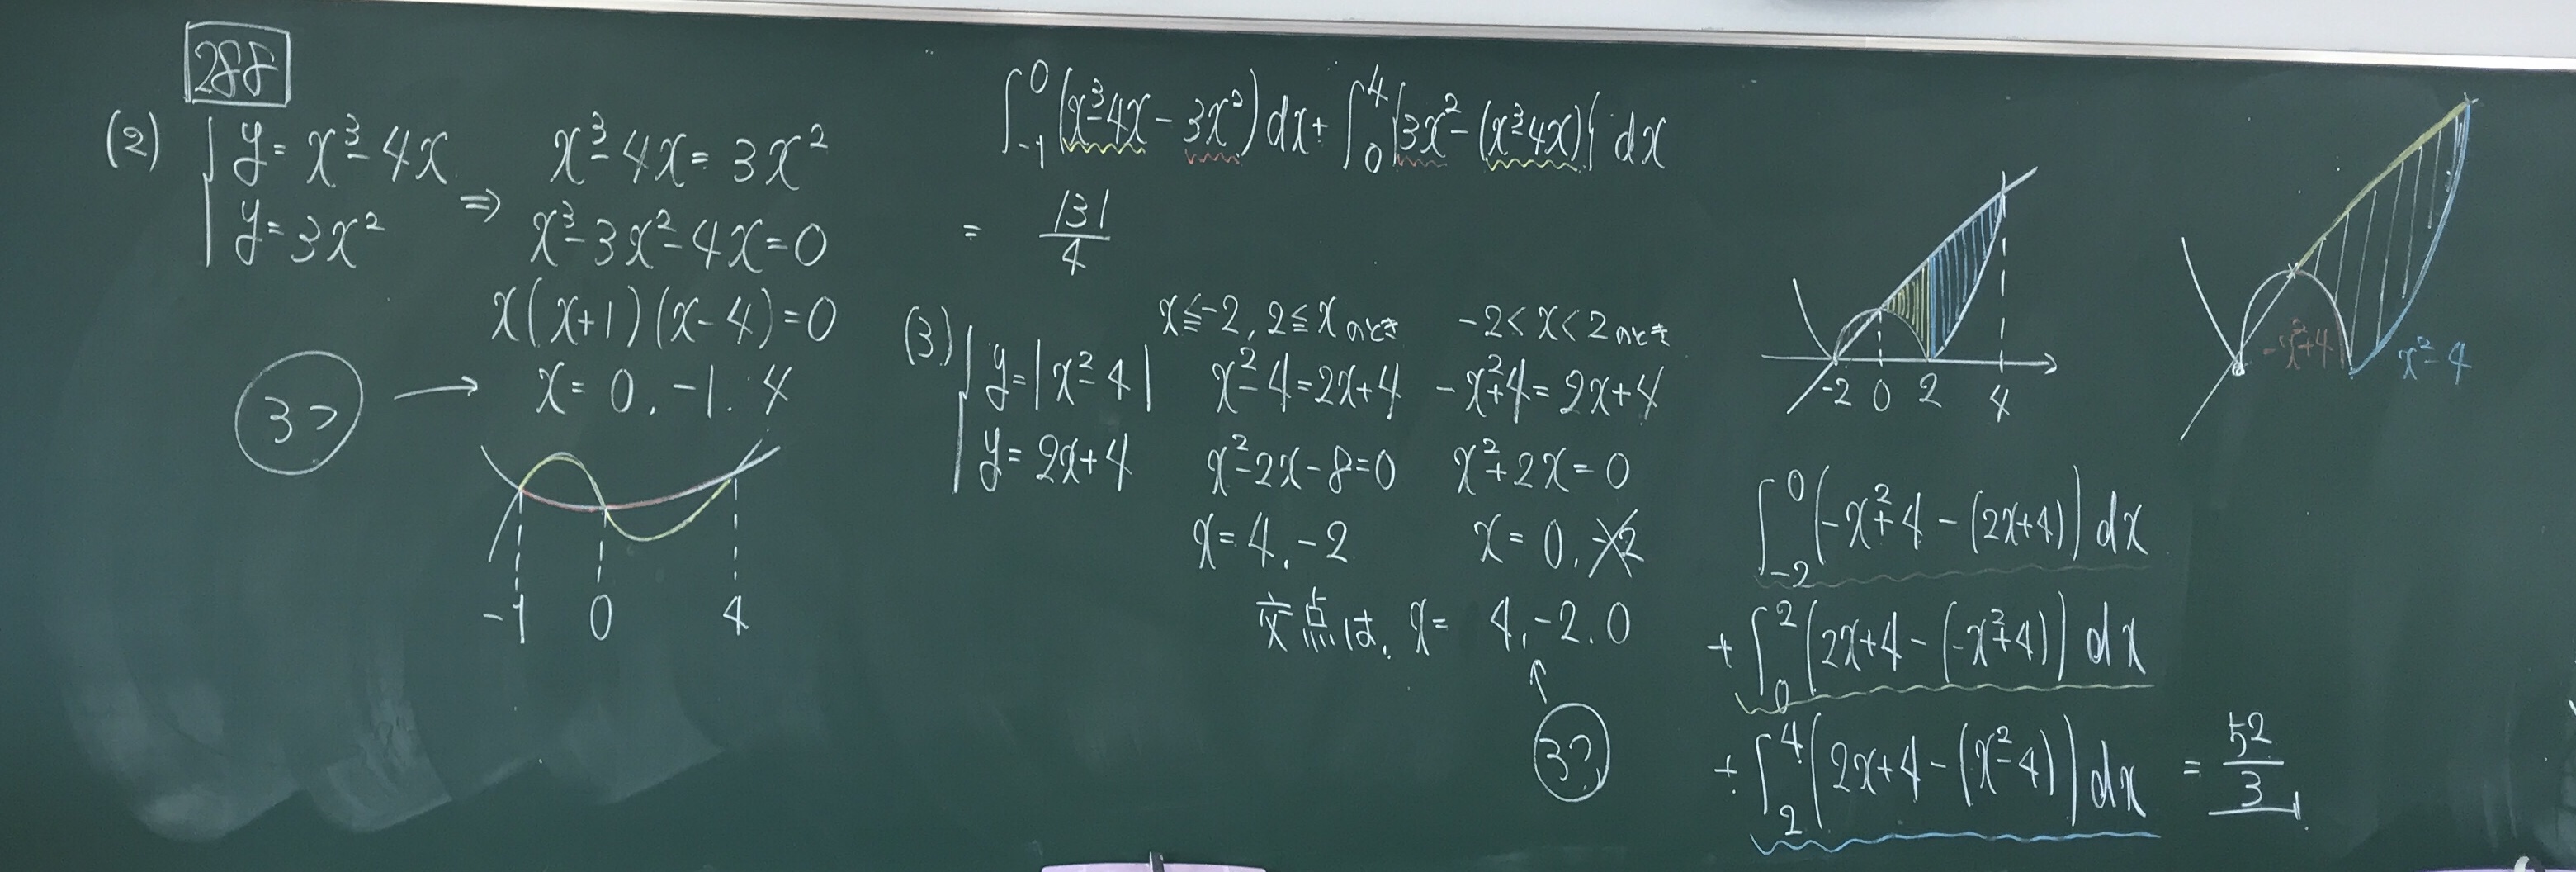 288
(2) { y = x³ - 4x
y = 3x²
⇒ x³ - 4x = 3x²
x³ - 3x² - 4x = 0
x(x+1)(x-4) = 0
3つ → x = 0, -1, 4
-1 0 4
∫_{-1}^{0} (x³-4x - 3x²) dx + ∫_{0}^{4} {3x² - (x³-4x)} dx
= 131/4
(3) { y = |x²-4|
y = 2x+4
x ≦ -2, 2 ≦ x のとき
x²-4 = 2x+4
x²-2x-8 = 0
x = 4, -2
-2 < x < 2 のとき
-x²+4 = 2x+4
x²+2x = 0
x = 0, -2
交点は, x = 4, -2, 0
↑
3つ
-2 0 2 4
-x²+4 x²-4
∫_{-2}^{0} (-x²+4 - (2x+4)) dx
+ ∫_{0}^{2} (2x+4 - (-x²+4)) dx
+ ∫_{2}^{4} (2x+4 - (x²-4)) dx = 52/3